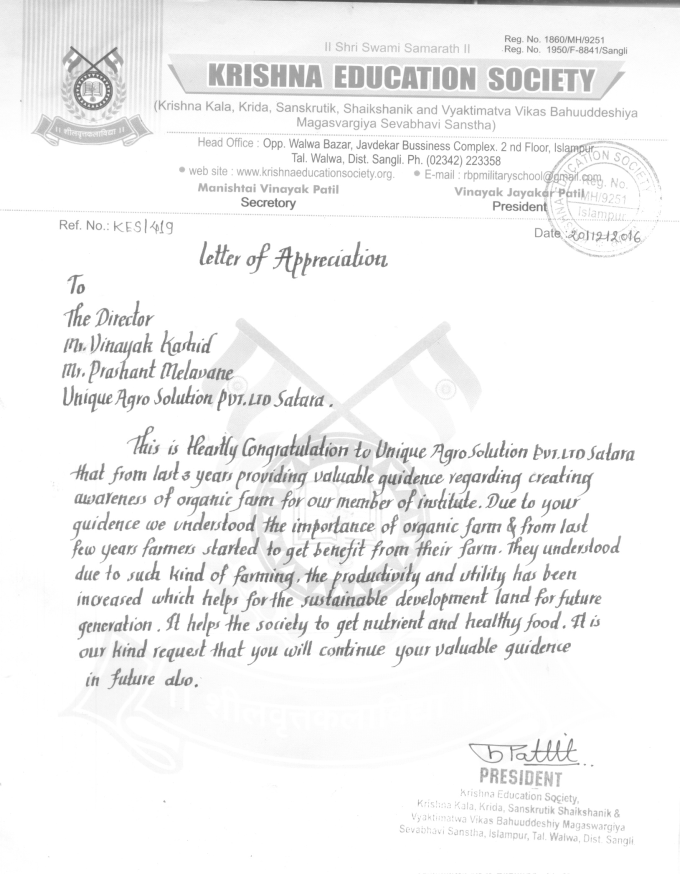 II Shri Swami Samarath II
Reg. No. 1860/MH/9251
Reg. No. 1950/F-8841/Sangli
KRISHNA EDUCATION SOCIETY
(Krishna Kala, Krida, Sanskrutik, Shaikshanik and Vyaktimatva Vikas Bahuuddeshiya
Magasvargiya Sevabhavi Sanstha)
।। शीलवृत्तकलाविद्या ।।
Head Office : Opp. Walwa Bazar, Javdekar Bussiness Complex. 2 nd Floor, Islampur
Tal. Walwa, Dist. Sangli. Ph. (02342) 223358
• web site : www.krishnaeducationsociety.org. • E-mail : rbpmilitaryschool@gmail.com
Manishtai Vinayak Patil
Secretary
Vinayak Jayakar Patil
President
EDUCATION SOCIETY
Reg. No.
MH/9251
Islampur
Ref. No.: KES/419
Date : 20/12/2016
Letter of Appreciation
To
The Director
Mr. Vinayak Kashid
Mr. Prashant Melavane
Unique Agro Solution PVT. LTD Satara.
This is Heartly Congratulation to Unique Agro Solution PVT. LTD Satara
that from last 3 years providing valuable guidence regarding creating
awareness of organic farm for our member of institute. Due to your
guidence we understood the importance of organic farm & from last
few years farmers started to get benefit from their farm. They understood
due to such kind of farming, the productivity and utility has been
increased which helps for the sustainable development land for future
generation. It helps the society to get nutrient and healthy food. It is
our kind request that you will continue your valuable guidence
in future also.
।। शीलवृत्तकलाविद्या ।।
PRESIDENT
Krishna Education Society,
Krishna Kala, Krida, Sanskrutik Shaikshanik &
Vyaktimatwa Vikas Bahuuddeshiy Magaswargiya
Sevabhavi Sanstha, Islampur, Tal. Walwa, Dist. Sangli